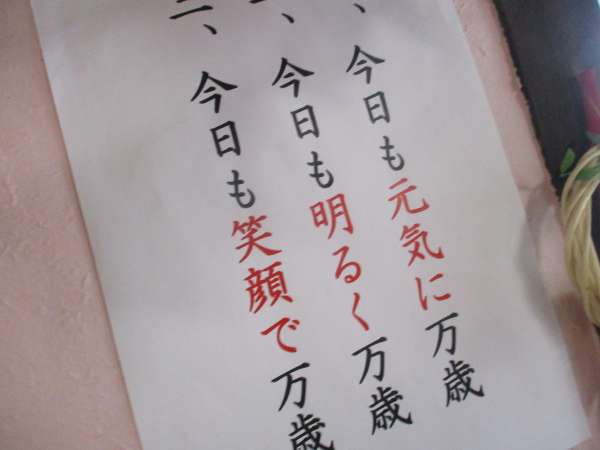 、今日も元気に万歳
一、今日も明るく万歳
二、今日も笑顔で万歳